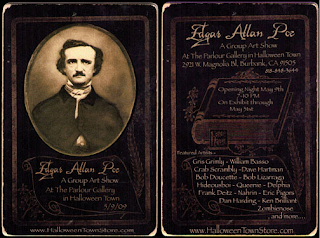 Edgar Allan Poe
A Group Art Show
At The Parlour Gallery
in Halloween Town
5/9/09
www.HalloweenTownStore.com
Edgar Allan Poe
A Group Art Show
At The Parlour Gallery in Halloween Town
2921 W. Magnolia Bl, Burbank, CA 91505
Opening Night May 9th
7-10 PM
On Exhibit through
May 31st
Featured Artists -
Gris Grimly - William Basso
Crab Scrambly - Dave Hartman
Bob Doucette - Bob Lizarraga
Hideousboi - Queenie - Delphia
Frank Dietz - Nahrin - Eric Pigors
Dan Harding - Ken Brilliant
Zombienose
... and more...
www.HalloweenTownStore.com